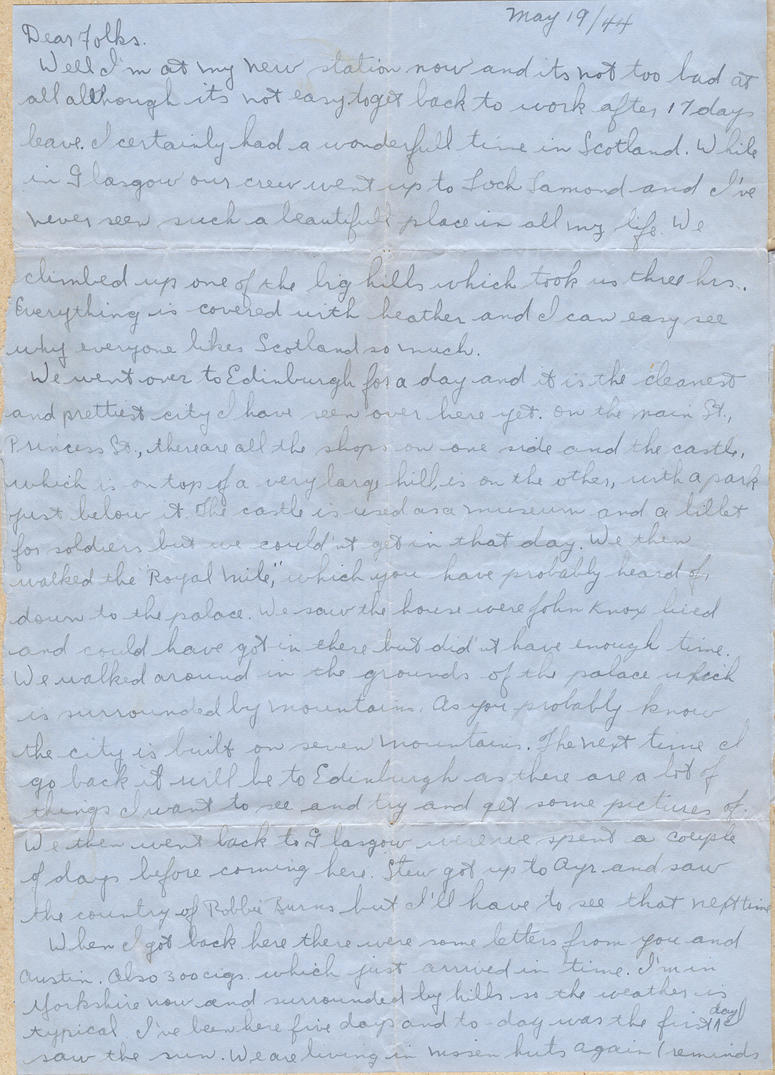 May 19/44
Dear Folks.
Well I'm at my new station now and its not too bad at
all although its not easy to get back to work after 17 days
leave. I certainly had a wonderfull time in Scotland. While
in Glasgow our crew went up to Loch Lamond and I've
never seen such a beautifull place in all my life. We
climbed up one of the big hills which took us three hrs..
Everything is covered with heather and I can easy see
why everyone likes Scotland so much.
We went over to Edinburgh for a day and it is the cleanest
and prettiest city I have seen over here yet. On the main St.,
Princess St., there are all the shops on one side and the castle,
which is on top of a very large hill, is on the other, with a park
just below it. The castle is used as a museum and a billet
for soldiers but we could'nt get in that day. We then
walked the "Royal Mile," which you have probably heard of,
down to the palace. We saw the house were John Knox lived
and could have got in there but did'nt have enough time.
We walked around in the grounds of the palace which
is surrounded by mountains. As you probably know
the city is built on seven mountains. The next time I
go back it will be to Edinburgh as there are a lot of
things I want to see and try and get some pictures of.
We then went back to Glasgow were we spent a couple
of days before coming here. Stew got up to Ayr and saw
the country of Robbie Burns but I'll have to see that next time
When I got back here there were some letters from you and
Austin. Also 300 cigs. which just arrived in time. I'm in
Yorkshire now and surrounded by hills so the weather is
typical. I've been here five days and to-day was the first day I
saw the sun. We are living in nissen huts again (reminds